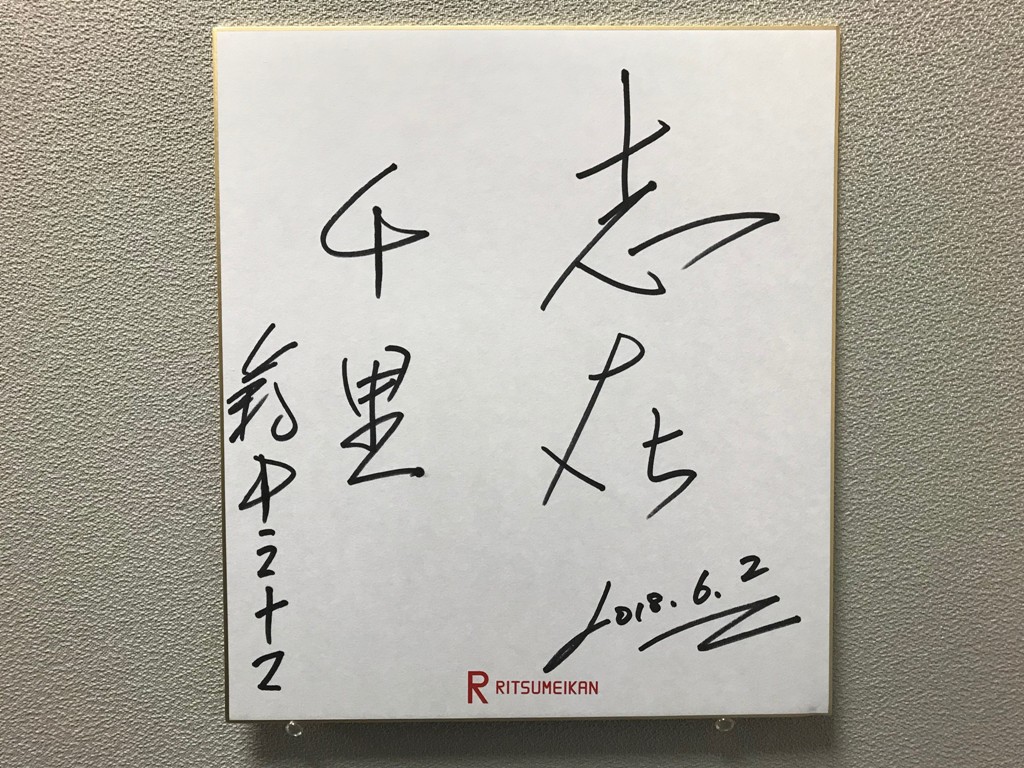 志在
千里
2018.6.2
R RITSUMEIKAN